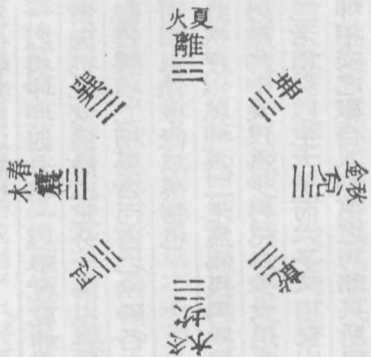 火夏
離
坤
金秋
兌
乾
水冬
坎
艮
木春
震
巽